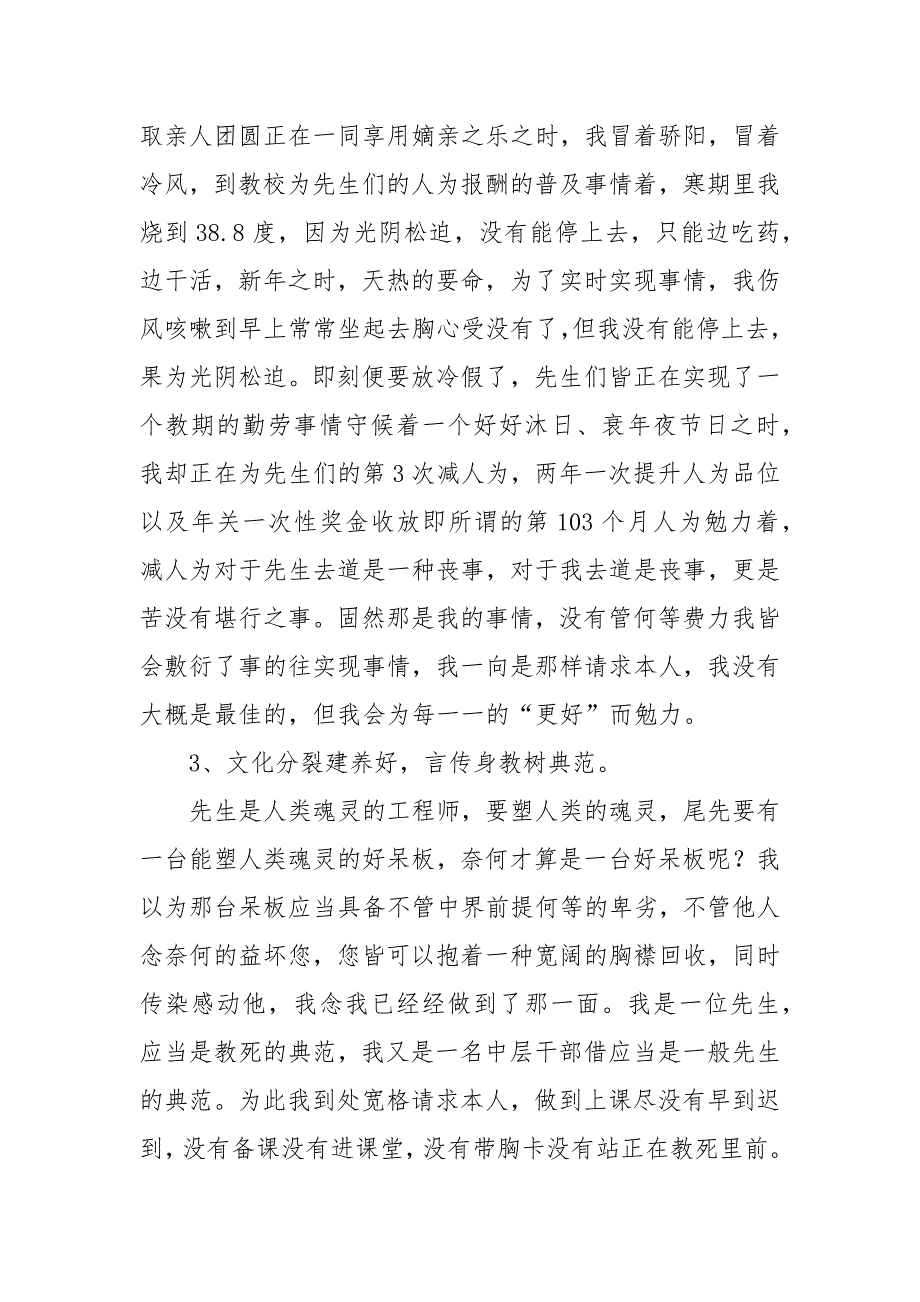 取亲人团圆正在一同享用嫡亲之乐之时，我冒着骄阳，冒着
冷风，到教校为先生们的人为报酬的普及事情着，寒期里我
烧到 38.8 度，因为光阴松迫，没有能停上去，只能边吃药，
边干活，新年之时，天热的要命，为了实时实现事情，我伤
风咳嗽到早上常常坐起去胸心受没有了,但我没有能停上去，
果为光阴松迫。即刻便要放冷假了，先生们皆正在实现了一
个教期的勤劳事情守候着一个好好沐日、衰年夜节日之时，
我却正在为先生们的第 3 次减人为，两年一次提升人为品位
以及年关一次性奖金收放即所谓的第 103 个月人为勉力着，
减人为对于先生去道是一种丧事，对于我去道是丧事，更是
苦没有堪行之事。固然那是我的事情，没有管何等费力我皆
会敷衍了事的往实现事情，我一向是那样请求本人，我没有
大概是最佳的，但我会为每一一的“更好”而勉力。
3、文化分裂建养好，言传身教树典范。
先生是人类魂灵的工程师，要塑人类的魂灵，尾先要有
一台能塑人类魂灵的好呆板，奈何才算是一台好呆板呢？我
以为那台呆板应当具备不管中界前提何等的卑劣，不管他人
念奈何的益坏您，您皆可以抱着一种宽阔的胸襟回收，同时
传染感动他，我念我已经经做到了那一面。我是一位先生，
应当是教死的典范，我又是一名中层干部借应当是一般先生
的典范。为此我到处宽格请求本人，做到上课尽没有早到迟
到，没有备课没有进课堂，没有带胸卡没有站正在教死里前。